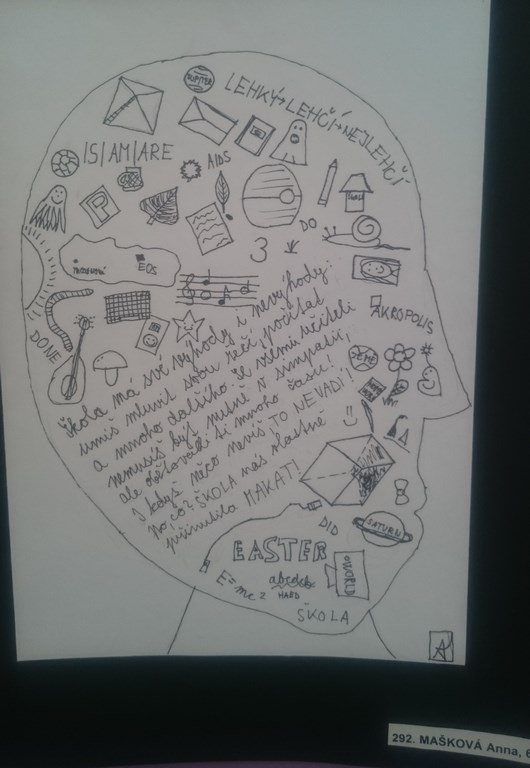 JUPITER
LEHKÝ→LEHČÍ→NEJLEHČÍ
IS|AM|ARE
AIDS
P
DO
3
EOS
DONE
AKROPOLIS
Škola má své výhody i nevýhody:
umíš mluvit snou řečí, počítat
a mnoho dalšího. Je všemu učiteli
nemusíš být nutně v simpatii,
ale obětovali ti mnoho času!
I když něco nevíš TO NEVADÍ!
No co? ŠKOLA nás vlastně
přinutila MAKAT!
DID
SATURN
EASTER
WORLD
E=mc2
HARD
ŠKOLA
292. MAŠKOVÁ Anna, 6